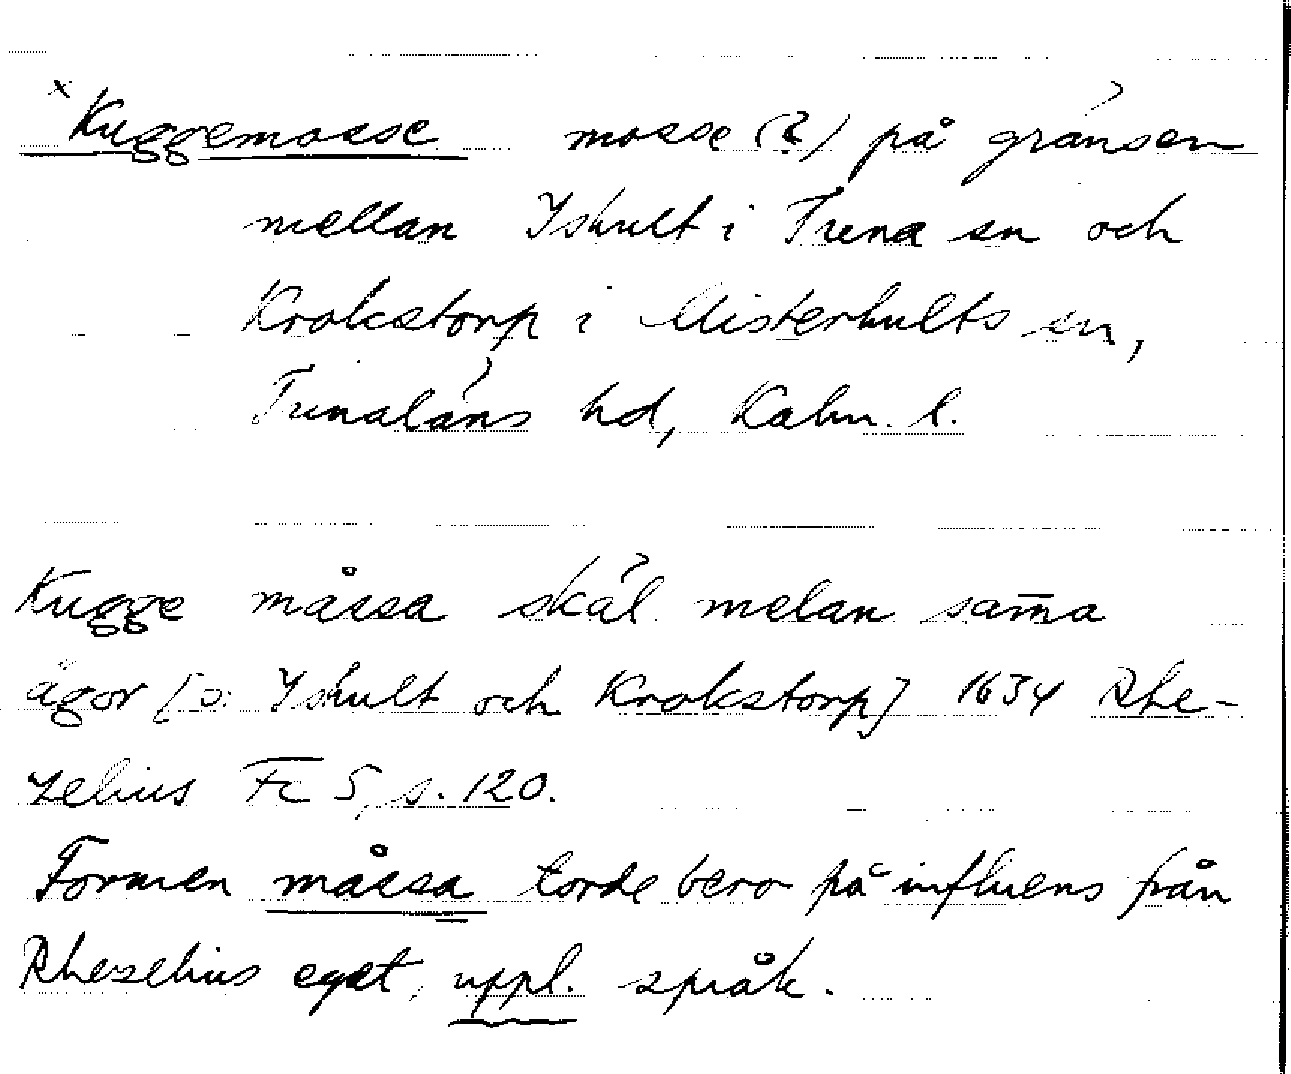 x Kuggemosse mosse (?) på gränsen
mellan Ishult i Tuna sn och
Krokstorp i Misterhults sn,
Tunaläns hd, Kalm. l.
Kugge måssa skäl melan sam̄a
ägor [ɔ: Ishult och Krokstorp] 1634 Rhe-
zelius Fc 5, s. 120.
Formen måssa torde bero på influens från
Rhezelius eget, uppl. språk.